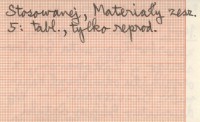 Stosowanej, Materiały zesz.
5: tabl., tylko reprod.